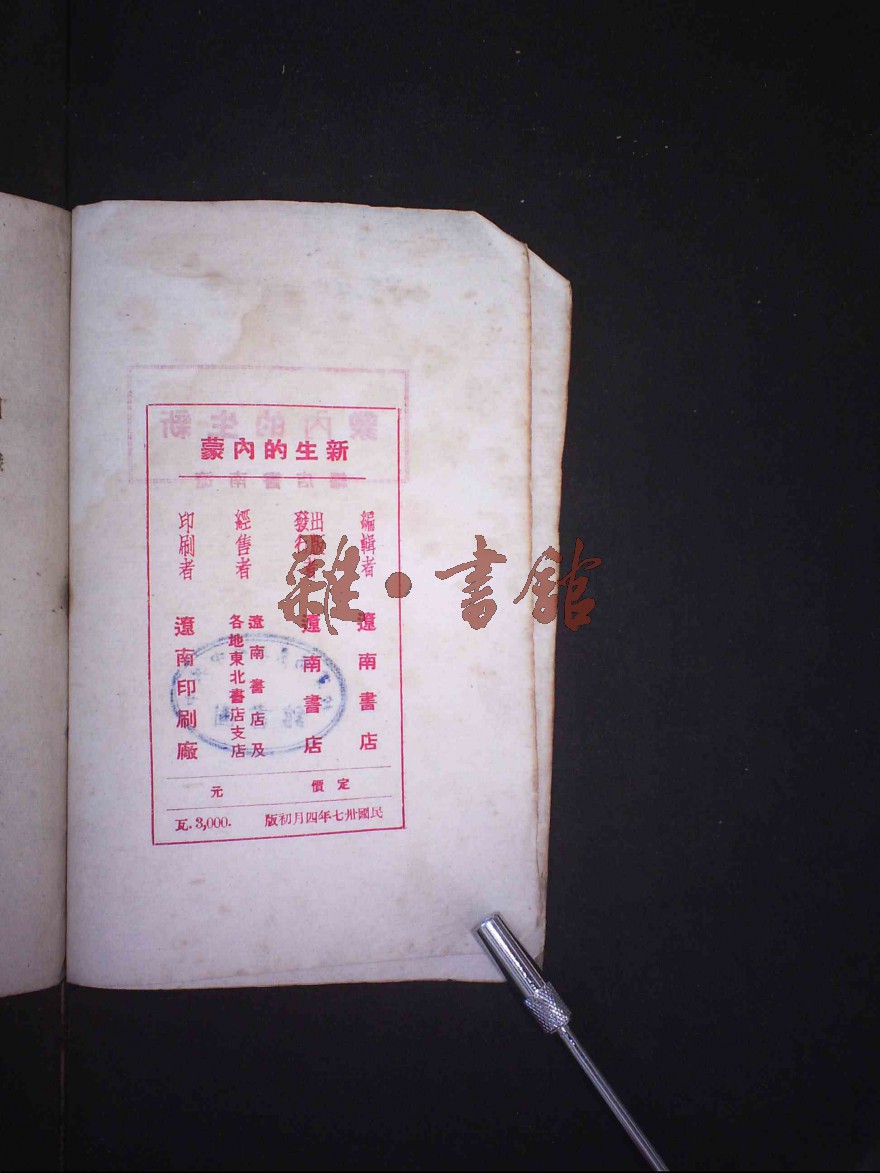 新生的內蒙
編輯者 遼南書店
出版者
發行者 遼南書店
經售者 遼南書店及
各地東北書店支店
印刷者 遼南印刷廠
定價 元
民國卅七年四月初版
瓦.3,000.
雜·書館